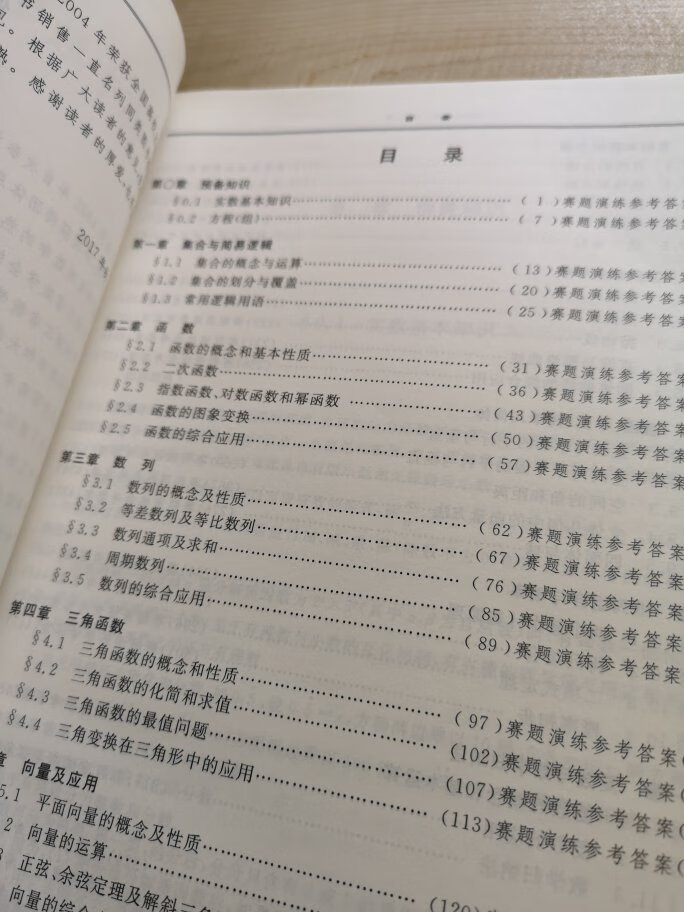 2004年荣获全国
书销售一直名列同类
根据广大读者的意见
感谢读者的厚爱
2017年
目 录
目 录
第〇章 预备知识
§0.1 实数基本知识……(1)赛题演练参考答案
§0.2 方程(组)……(7)赛题演练参考答案
第一章 集合与简易逻辑
§1.1 集合的概念与运算……(13)赛题演练参考答案
§1.2 集合的划分与覆盖……(20)赛题演练参考答案
§1.3 常用逻辑用语……(25)赛题演练参考答案
第二章 函 数
§2.1 函数的概念和基本性质……(31)赛题演练参考答案
§2.2 二次函数……(36)赛题演练参考答案
§2.3 指数函数、对数函数和幂函数……(43)赛题演练参考答案
§2.4 函数的图象变换……(50)赛题演练参考答案
§2.5 函数的综合应用……(57)赛题演练参考答案
第三章 数 列
§3.1 数列的概念及性质……(62)赛题演练参考答案
§3.2 等差数列及等比数列……(67)赛题演练参考答案
§3.3 数列通项及求和……(76)赛题演练参考答案
§3.4 周期数列……(85)赛题演练参考答案
§3.5 数列的综合应用……(89)赛题演练参考答案
第四章 三角函数
§4.1 三角函数的概念和性质……(97)赛题演练参考答案
§4.2 三角函数的化简和求值……(102)赛题演练参考答案(
§4.3 三角函数的最值问题……(107)赛题演练参考答案(
§4.4 三角变换在三角形中的应用……(113)赛题演练参考答案(
章 向量及应用
5.1 平面向量的概念及性质……(120)
2 向量的运算……
3 正弦、余弦定理及解斜三角
向量的综合